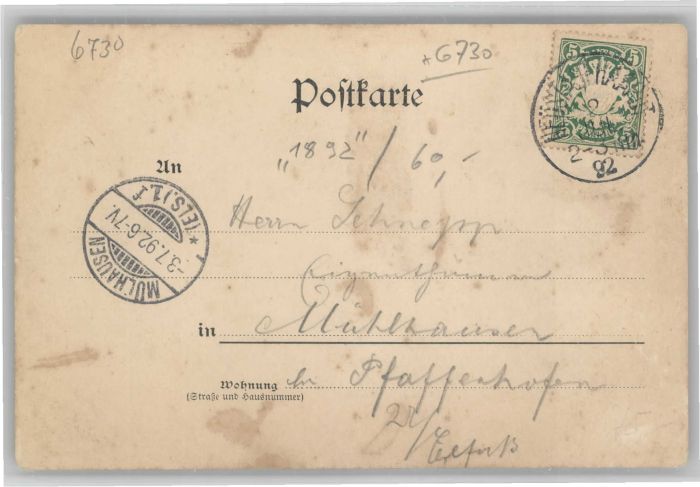 6730
*6730
5
Postkarte
„1892"/60,-
92
An
MÜLHAUSEN
*(ELS.)1.f
-3.7.92.6-7V.
Herrn Schnepp
Eigenthümer
in Mühlhausen
Wohnung
(Straße und Hausnummer)
Pfaffenhofen